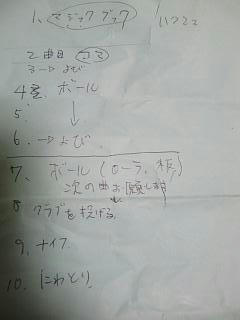 1、マジックブック
2曲目 コマ
3 → よび
4、ボール
↓
5.
6. → よび
7、ボール (ローラ、板)
次の曲お願します
8 クラブを投げる
9. ナイフ
10. にわとり